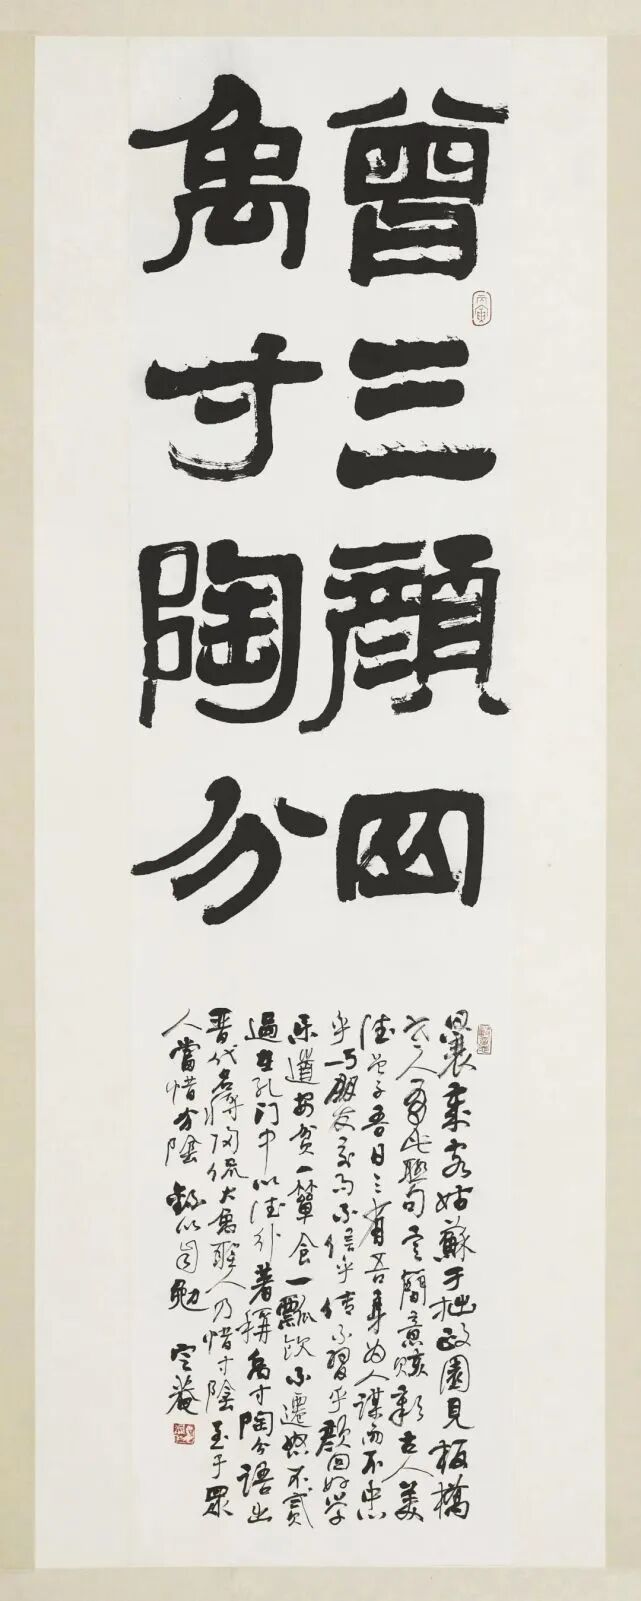 曾三顏四
禹寸陶分
丙寅
曩歲客姑蘇于拙政園見板橋
人此聯句言簡意賅彰古人美
德曾子吾日三省吾身為人謀而不忠
乎与朋友交而不信乎傳不習乎顏回好學
樂道安貧一簞食一瓢飲不遷怒不貳
過在孔門中以德行著稱禹寸陶分語出
晉代名將陶侃大禹聖人乃惜寸陰至于眾
人當惜分陰 錄以自勉 定菴